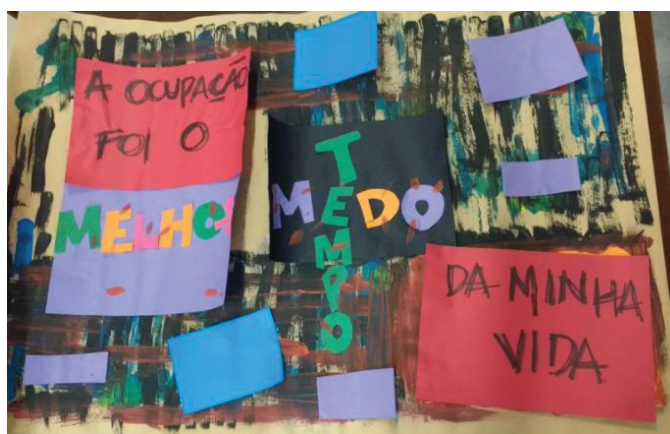 A OCUPAÇÃO
FOI O
MELHOR
TEMPO
MEDO
DA MINHA
VIDA